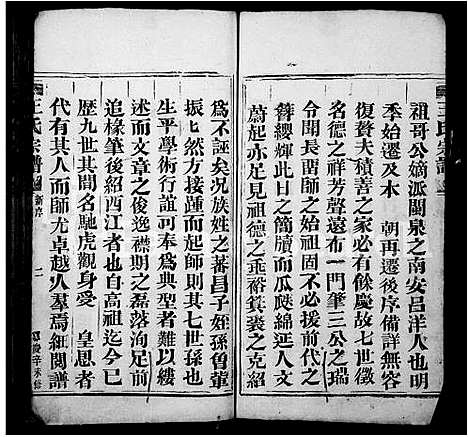 王氏宗譜
祖哥公嫡派閩泉之南安呂洋人也明
季始遷及木 朝再遷後序備詳無容
復贅夫積善之家必有餘慶故七世徵
名德之祥芳聲遠布一門筆三公之瑞
今開長罶師之名援前代之
簪纓輝此日之簡牘而瓜瓞綿延人文
蔚起亦足見祖德之垂裕箕裘之克紹
為不誣矣况族姓之蕃昌子姪孫曾輩
振七然方接踵而起師則其七世孫也
生平學術行誼可奉為典型者難以縷
述而文章之俊逸襟期之磊落洵足前
追椽筆後紹西江者也自高祖迄今已
歷九世其間名馳虎觀身受 皇恩者
代有其人而師尤卓越人羣焉細閱譜
王氏宗譜 新序 二